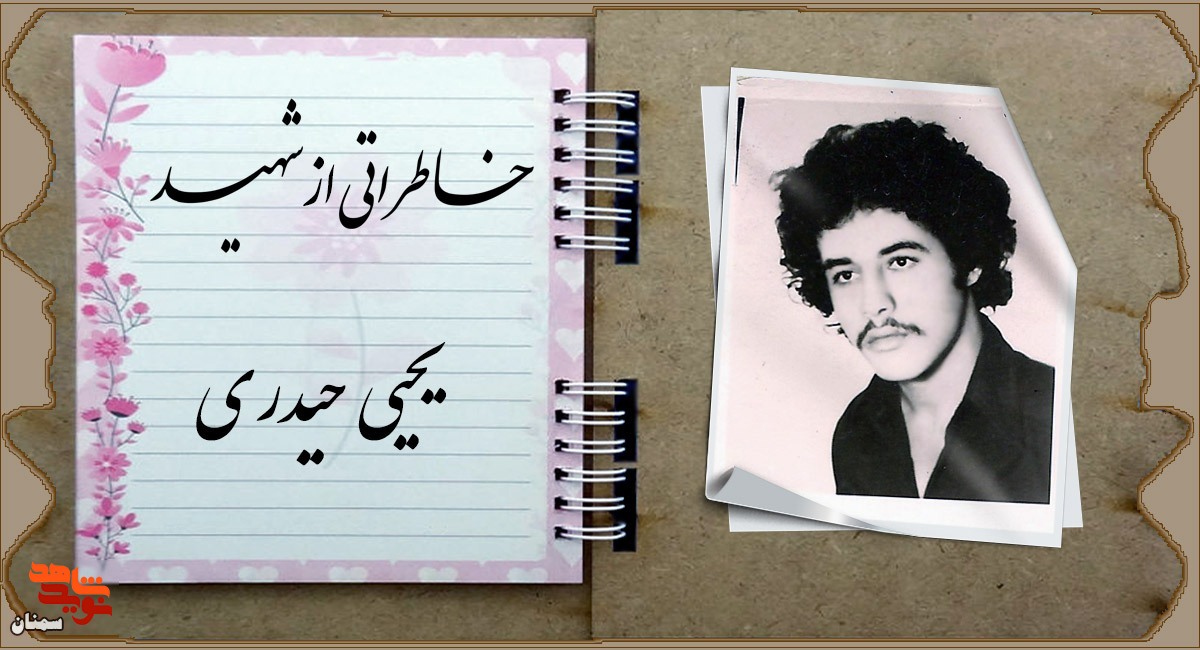 خاطراتی از شهید
یحیی حیدری
نوید شاهد
سمنان